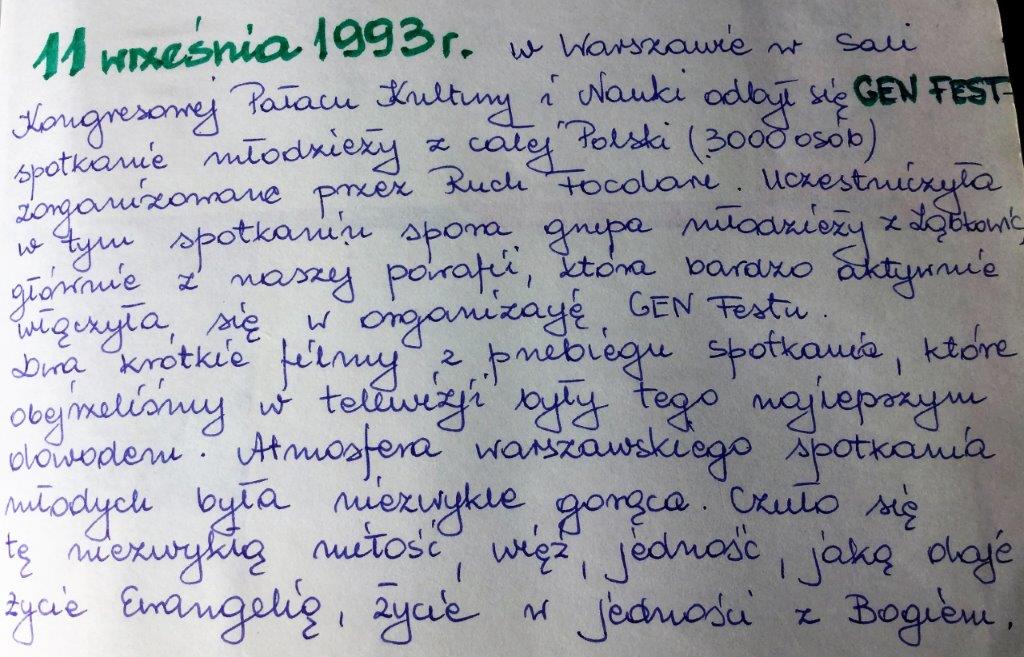 11 września 1993 r. w Warszawie w Sali
Kongresowej Pałacu Kultury i Nauki odbył się GEN FEST-
spotkanie młodzieży z całej Polski (3000 osób)
zorganizowane przez Ruch Focolare. Uczestniczyła
w tym spotkaniu spora grupa młodzieży z Ząbkowic,
głównie z naszej parafii, która bardzo aktywnie
włączyła się w organizację GEN Festu.
Dwa krótkie filmy z przebiegu spotkania, które
obejrzeliśmy w telewizji były tego najlepszym
dowodem. Atmosfera warszawskiego spotkania
młodych była niezwykle gorąca. Czuło się
tę niezwykłą miłość, więź, jedność, jaką daje
życie Ewangelią, życie w jedności z Bogiem.